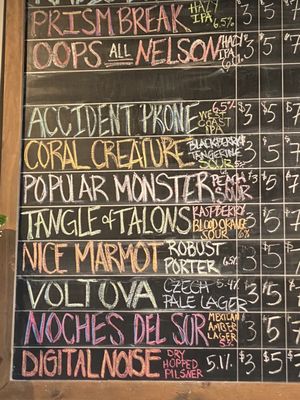 PRISM BREAK HAZY IPA 6.5% $3 $5 $7
OOPS ALL NELSON HAZY IPA $3 $5 $7
ACCIDENT PRONE 6.5% WEST COAST IPA $3 $5 $7
CORAL CREATURE BLACKBERRY TANGERINE SOUR $3 $5 $7
POPULAR MONSTER PEACH SOUR $3 $5 $7
TANGLE OF TALONS RASPBERRY BLOOD ORANGE SOUR 6% $3 $5 $7
NICE MARMOT ROBUST PORTER $3 $5 $7
VOLTOVA CZECH PALE LAGER 5.4% $3 $5 $7
NOCHES DEL SOR MEXICAN AMBER LAGER $3 $5 $7
DIGITAL NOISE DRY HOPPED PILSNER 5.1% $3 $5 $7